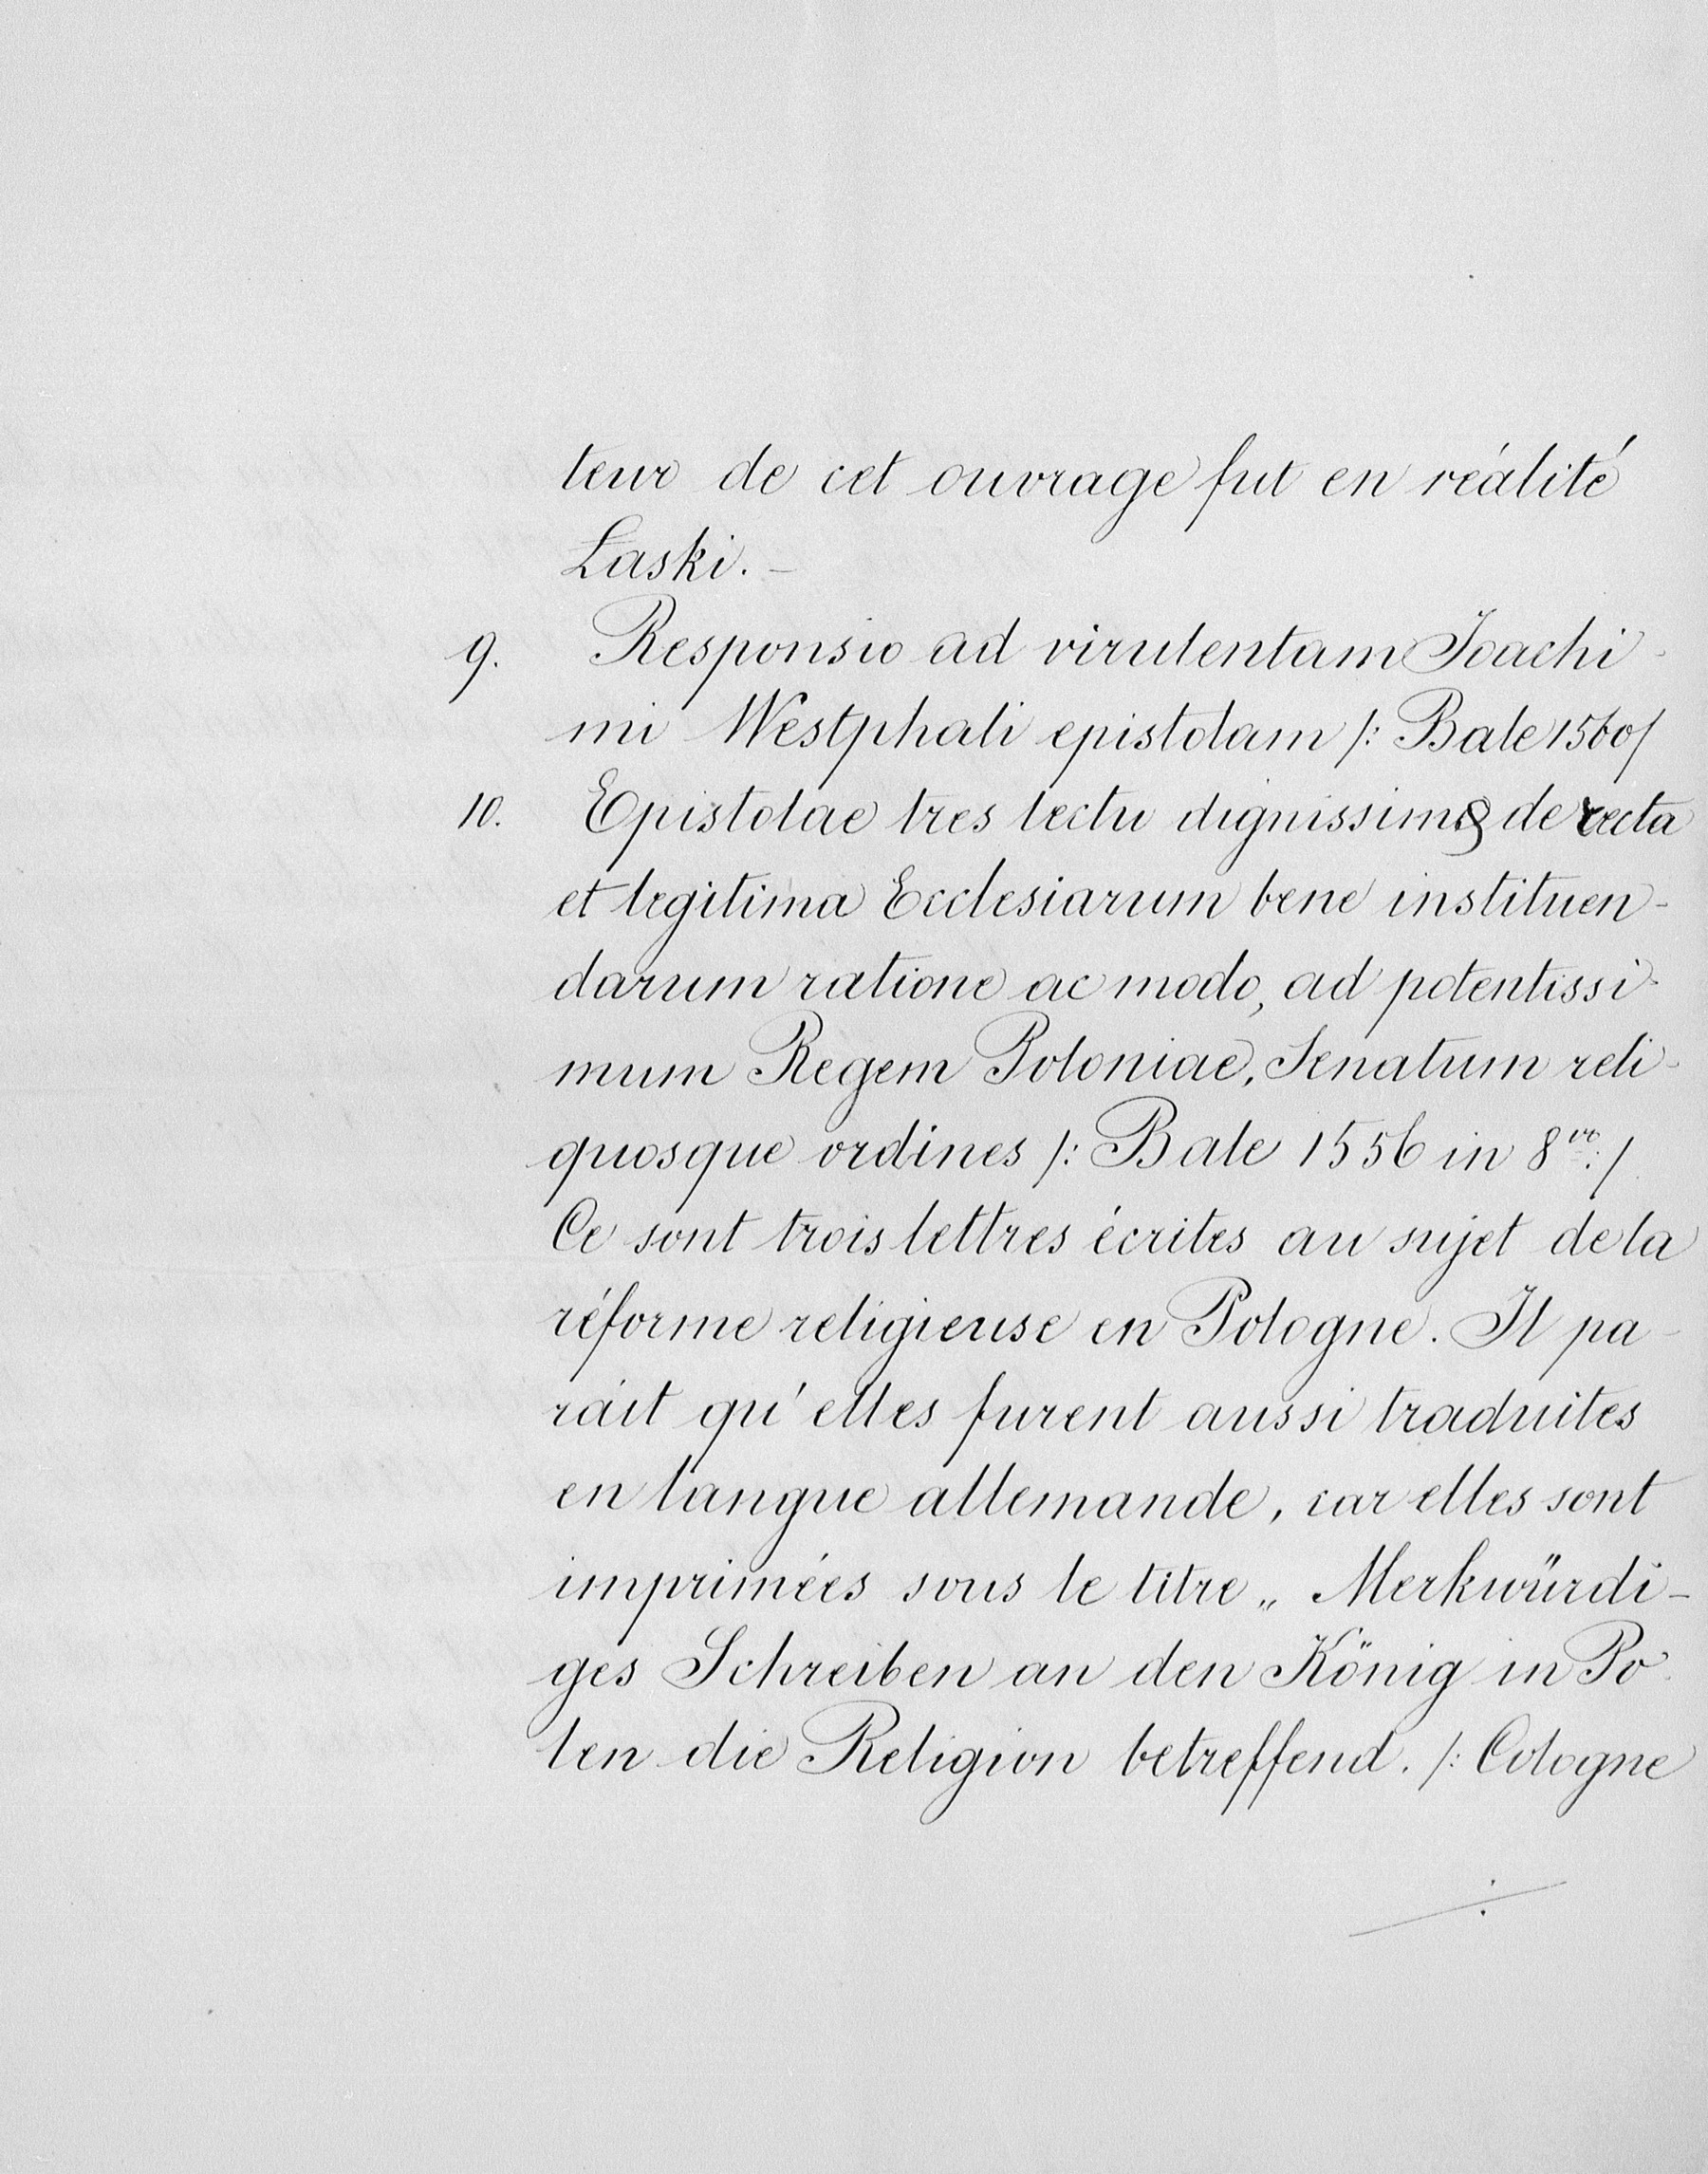 teur de cet ouvrage fut en réalité
Laski. -
9. Responsio ad virulentam Joachi-
mi Westphali epistolam /: Bale 1560/
10. Epistolae tres lectu dignissimę de recta
et legitima Ecclesiarum bene instituen-
darum ratione ac modo, ad potentissi-
mum Regem Poloniae, Senatum reli-
quosque ordines /: Bale 1556 in 8vo:/
Ce sont trois lettres écrites au sujet de la
réforme religieuse en Pologne. Il pa-
rait qu'elles furent aussi traduites
en langue allemande, car elles sont
imprimées sous le titre „ Merkwürdi-
ges Schreiben an den König in Po-
len die Religion betreffend. /: Cologne